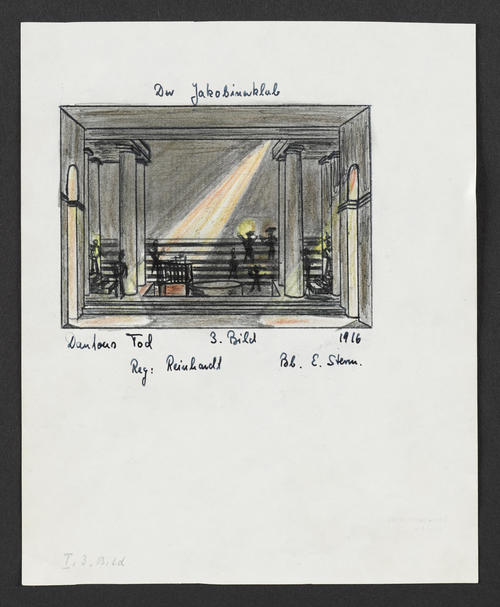 Der Jakobinerklub
Dantons Tod 3. Bild 1916
Reg: Reinhardt Bb. E. Stern.
I, 3. Bild